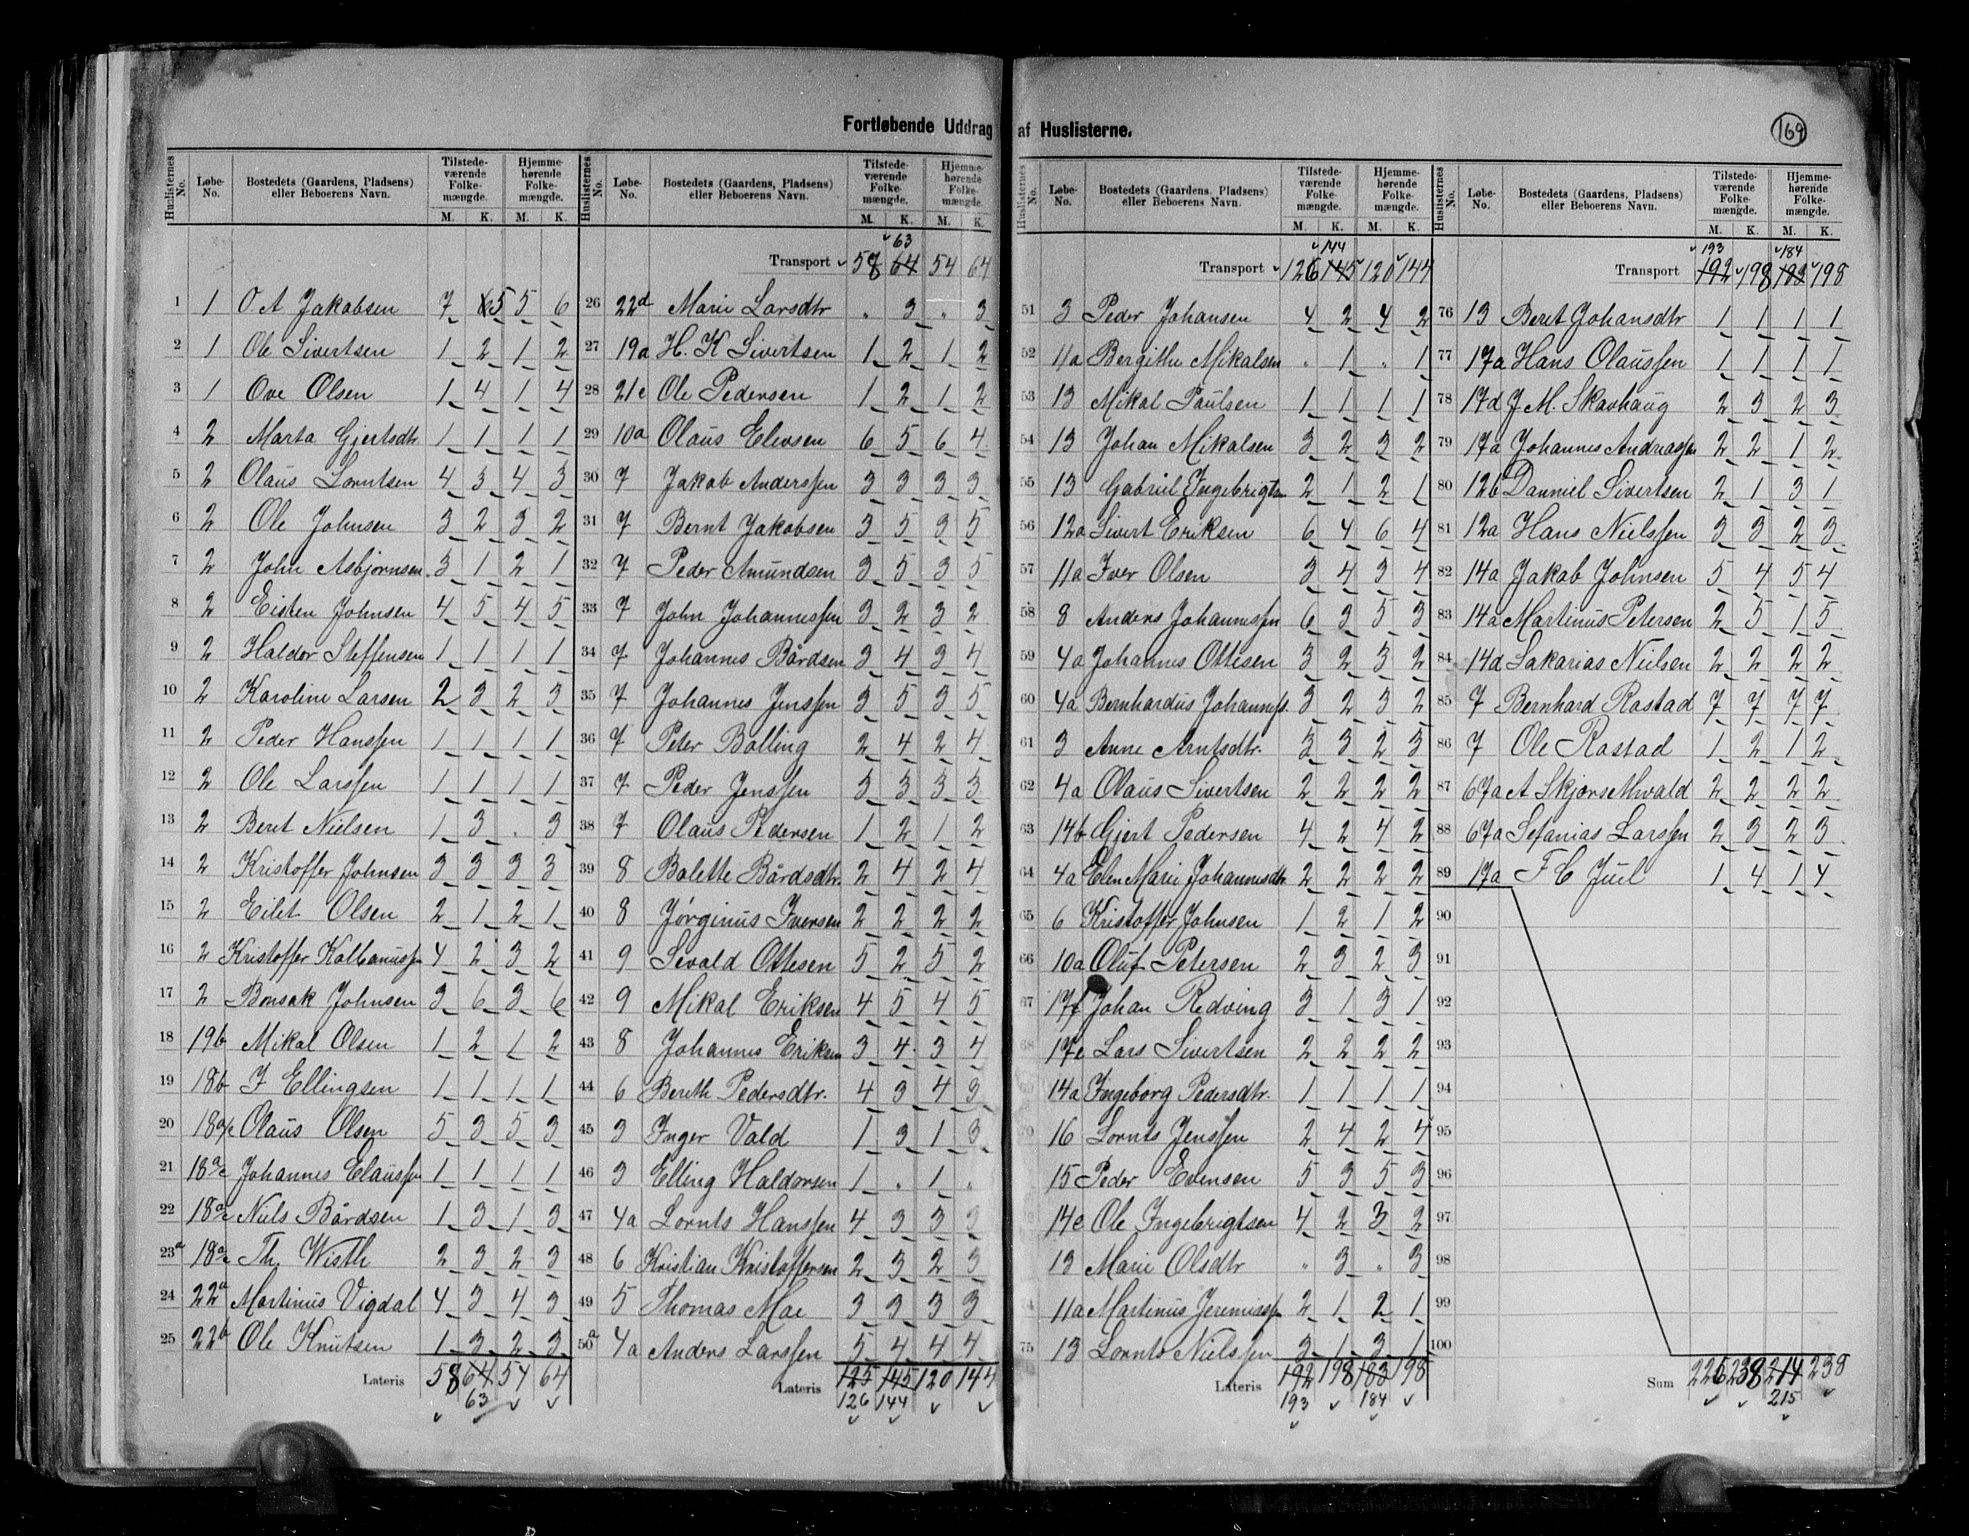 Fortløbende Uddrag af Huslisterne.
169
Huslisternes No. | Løbe-No. | Bostedets (Gaardens, Pladsens) eller Beboerens Navn. | Tilstedeværende Folkemængde. M. K. | Hjemmehørende Folkemængde. M. K.
1 1 O A Jakobsen 7 5 5 6
2 1 Ole Sivertsen 1 2 1 2
3 1 Ove Olsen 1 4 1 4
4 2 Marta Gjertsdtr 1 1 1 1
5 2 Olaus Lorntsen 4 3 4 3
6 2 Ole Johnsen 3 2 3 2
7 2 John Asbjørnsen 3 1 2 1
8 2 Eisten Johnsen 4 5 4 5
9 2 Haldor Steffensen 1 1 1 1
10 2 Karoline Larsen 2 3 2 3
11 2 Peder Hanssen 1 1 1 1
12 2 Ole Larssen 1 1 1 1
13 2 Beret Nielsen 1 3 . 3
14 2 Kristoffer Johnsen 3 3 3 3
15 2 Eilet Olsen 2 1 2 1
16 2 Kristoffer 4 2 3 2
17 2 Bonsak Johnsen 3 6 3 6
18 19b Mikal Olsen 1 2 1 2
19 18b J Ellingsen 1 1 1 1
20 18a/c Olaus Olsen 5 3 5 3
21 18a/c Johannes Claussen 1 1 1 1
22 18a/c Niels Bårdsen 1 3 1 3
23a 18a/c Th. Wisth 2 3 2 3
24 22a Martinus Vigdal 4 3 4 3
25 22b Ole Knutsen 1 3 2 3
Lateris 58 64 54 64
63
Huslisternes No. | Løbe-No. | Bostedets (Gaardens, Pladsens) eller Beboerens Navn. | Tilstedeværende Folkemængde. M. K. | Hjemmehørende Folkemængde. M. K.
63
Transport 58 64 54 64
26 22d Marie Larsdtr " 3 " 3
27 19a H. K Sivertsen 1 2 1 2
28 21c Ole Pedersen 1 2 1 2
29 10a Olaus Elevsen 6 5 6 4
30 7 Jakob Anderssen 3 3 3 3
31 7 Bernt Jakobsen 3 5 3 5
32 7 Peder Amundsen 3 5 3 5
33 7 John Johannessen 3 2 3 2
34 7 Johannes Bårdsen 3 4 3 4
35 7 Johannes Jenssen 3 5 3 5
36 7 Peter Bolling 2 4 2 4
37 7 Peder Jenssen 3 3 3 3
38 7 Olaus Pedersen 1 2 1 2
39 8 Bolette Bårdsdtr. 2 4 2 4
40 8 Jørginus Iversen 2 2 2 2
41 9 Sivald Ottesen 5 2 5 2
42 9 Mikal Eriksen 4 5 4 5
43 8 Johannes Eriksen 3 4 3 4
44 6 Bereth Pedersdtr. 4 3 4 3
45 3 Inger Vald 1 3 1 3
46 3 Elling Haldorsen 1 . 1 .
47 4a Lornts Hanssen 4 3 3 3
48 6 Kristian Kristoffersen 2 3 2 3
49 5 Thomas Moe 3 3 3 3
50a 4a Anders Larssen 5 4 4 4
Lateris 125 145 120 144
126 144
Huslisternes No. | Løbe-No. | Bostedets (Gaardens, Pladsens) eller Beboerens Navn. | Tilstedeværende Folkemængde. M. K. | Hjemmehørende Folkemængde. M. K.
144
Transport 126 145 120 144
51 3 Peder Johansen 4 2 4 2
52 11a Bergithe Mikalsen " 1 " 1
53 13 Mikal Paulsen 1 1 1 1
54 13 Johan Mikalsen 3 2 3 2
55 13 Gabriel Ingebrigtsn 2 1 2 1
56 12a Sivert Eriksen 6 4 6 4
57 11a Iver Olsen 3 4 3 4
58 8 Anders Johannessen 6 3 5 3
59 4a Johannes Ottesen 3 2 3 2
60 4a Bernhardus Johanness. 3 2 3 2
61 3 Anne Arntsdtr. 3 3 2 3
62 4a Olaus Sivertsen 2 2 2 2
63 14b Gjert Pedersen 4 2 4 2
64 4a Elen Marie Johannesdtr 2 2 2 2
65 6 Kristoffer Johnsen 1 2 1 2
66 10a Oluf Petersen 2 3 2 3
67 17f Johan Redving 3 1 3 1
68 17e Lars Sivertsen 2 2 2 2
14a Ingeborg Pedersdtr. 1 1 1 1
70 16 Lornts Jenssen 2 4 2 4
15 Peder Evensen 5 3 5 3
14c Ole Ingebrigtsen 4 2 3 2
13 Marie Olsdtr " 3 " 3
11a Martinus Jeremiassn 2 1 2 1
75 13 Lornts Nielssen 3 1 3 1
Lateris 192 198 183 198
193 184
Huslisternes No. | Løbe-No. | Bostedets (Gaardens, Pladsens) eller Beboerens Navn. | Tilstedeværende Folkemængde. M. K. | Hjemmehørende Folkemængde. M. K.
193 184
Transport 192 198 183 198
76 13 Beret Johansdtr 1 1 1 1
77 17a Hans Olaussen 1 1 1 1
78 17d J M. Skavhaug 2 3 2 3
79 17a Johannes Andreassen 2 2 1 2
80 12b Danniel Sivertsen 2 1 3 1
81 12a Hans Nielssen 3 3 2 3
82 14a Jakob Johnsen 5 4 5 4
83 14a Martinus Petersen 2 5 1 5
84 14d Sakarias Nielsen 2 2 2 2
85 7 Bernhard Rostad 7 7 7 7
86 7 Ole Rostad 1 2 1 2
87 67a A 2 2 2 2
88 67a Sefanias Larssen 2 3 2 3
89 17a F C Juel 1 4 1 4
90
91
92
93
94
95
96
97
98
99
100
Sum 226 238 214 238
215